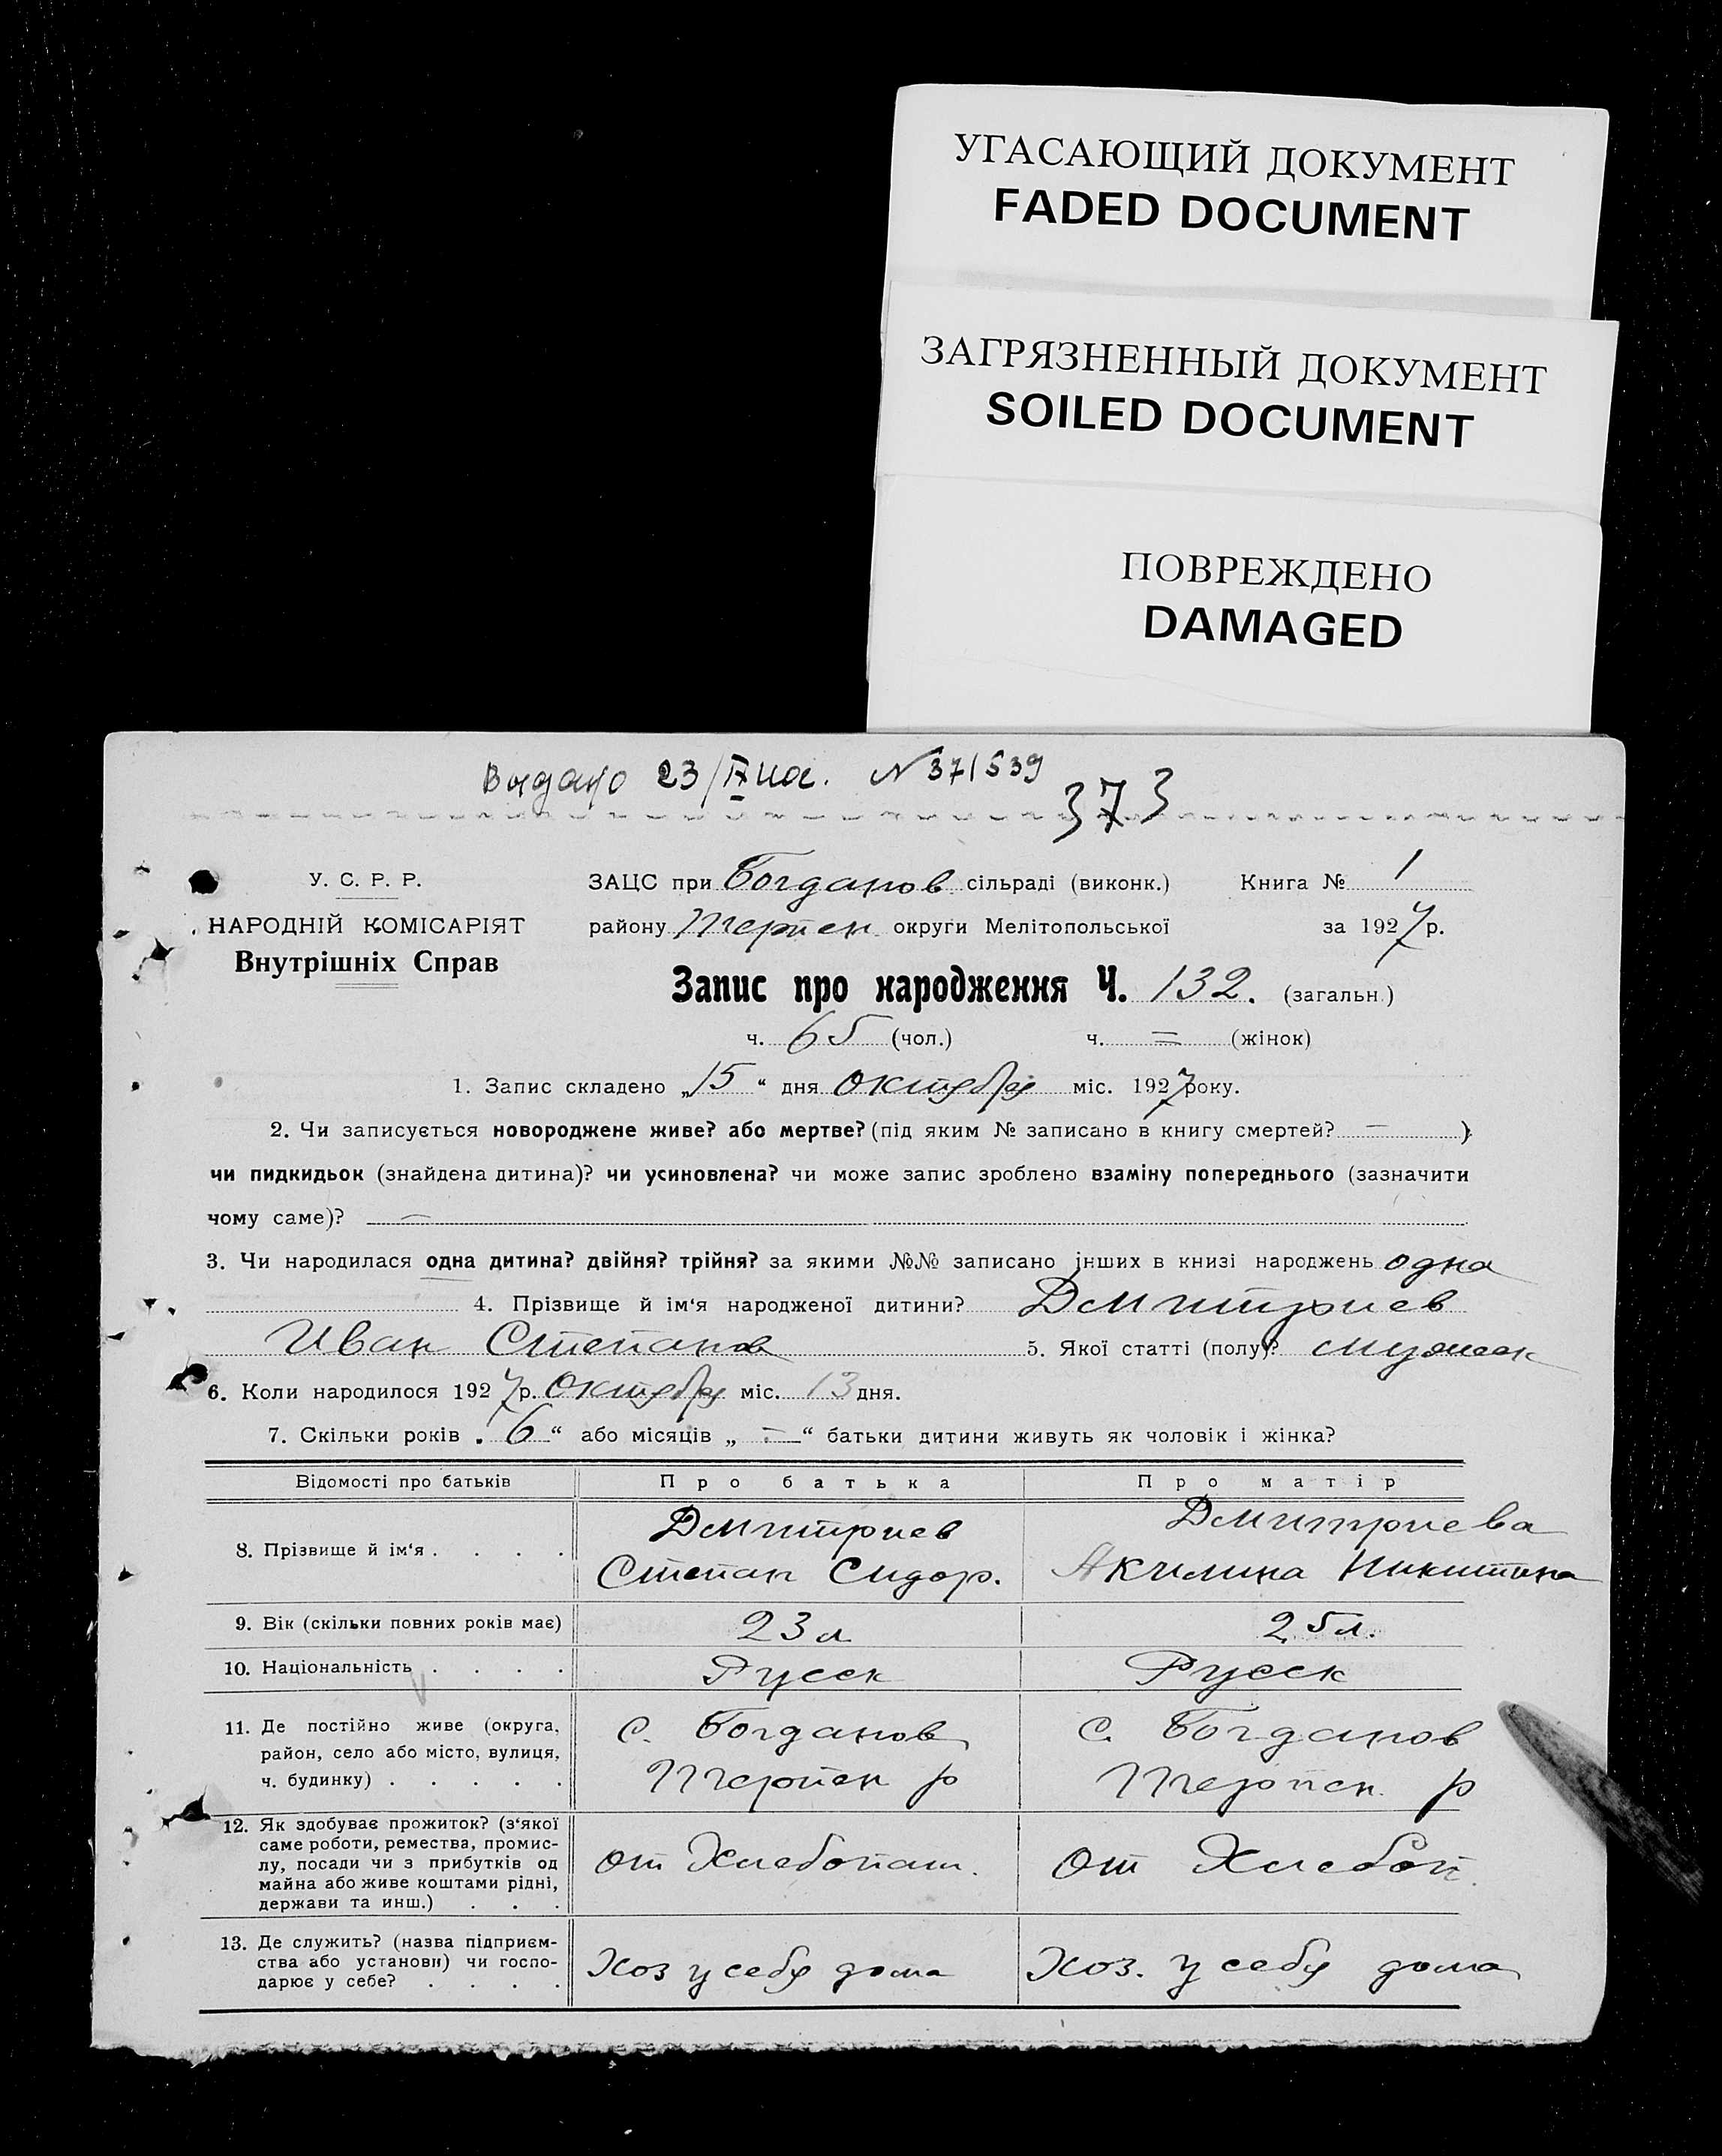 УГАСАЮЩИЙ ДОКУМЕНТ
FADED DOCUMENT
ЗАГРЯЗНЕННЫЙ ДОКУМЕНТ
SOILED DOCUMENT
ПОВРЕЖДЕНО
DAMAGED
Видано 23/ № 371539
373
У. С. Р. Р.
НАРОДНІЙ КОМІСАРІЯТ
Внутрішніх Справ
ЗАЦС при Богданов сільраді (виконк.) Книга № 1
району Терпен округи Мелітопольської за 1927 р.
Запис про народження Ч. 132. (загальн.)
ч. 65 (чол.) ч. = (жінок)
1. Запис складено „15“ дня октября міс. 1927 року.
2. Чи записується новороджене живе? або мертве? (під яким № записано в книгу смертей? — )
чи пидкидьок (знайдена дитина)? чи усиновлена? чи може запис зроблено взаміну попереднього (зазначити
чому саме)? —
3. Чи народилася одна дитина? двійня? трійня? за якими №№ записано інших в книзі народжень одна
4. Прізвище й ім‘я народженої дитини? Дмитриев
Иван Степанов 5. Якої статті (полу)? мужеск
6. Коли народилося 1927 р. Октября міс. 13 дня.
7. Скільки років „6“ або місяців „ — “ батьки дитини живуть як чоловік і жінка?
Відомості про батьків Про батька Про матір
8. Прізвище й ім‘я . . . . Дмитриев Дмитриева
Степан Сидор. Акилина Никитина
9. Вік (скільки повних років має) 23 л 25 л.
10. Національність . . . . Русск Русск
11. Де постійно живе (округа, район, село або місто, вулиця, ч. будинку) . . . . . с. Богданов с. Богданов
Терпен р Терпен. р
12. Як здобуває прожиток? (з‘якої
саме роботи, ремества, промис-
лу, посади чи з прибутків од
майна або живе коштами рідні,
держави та инш.) . . .
от Хлебопаш. от Хлебоп.
13. Де служить? (назва підприєм-
ства або установи) чи госпо-
дарює у себе? . . . .
Хоз у себя дома Хоз. у себя дома